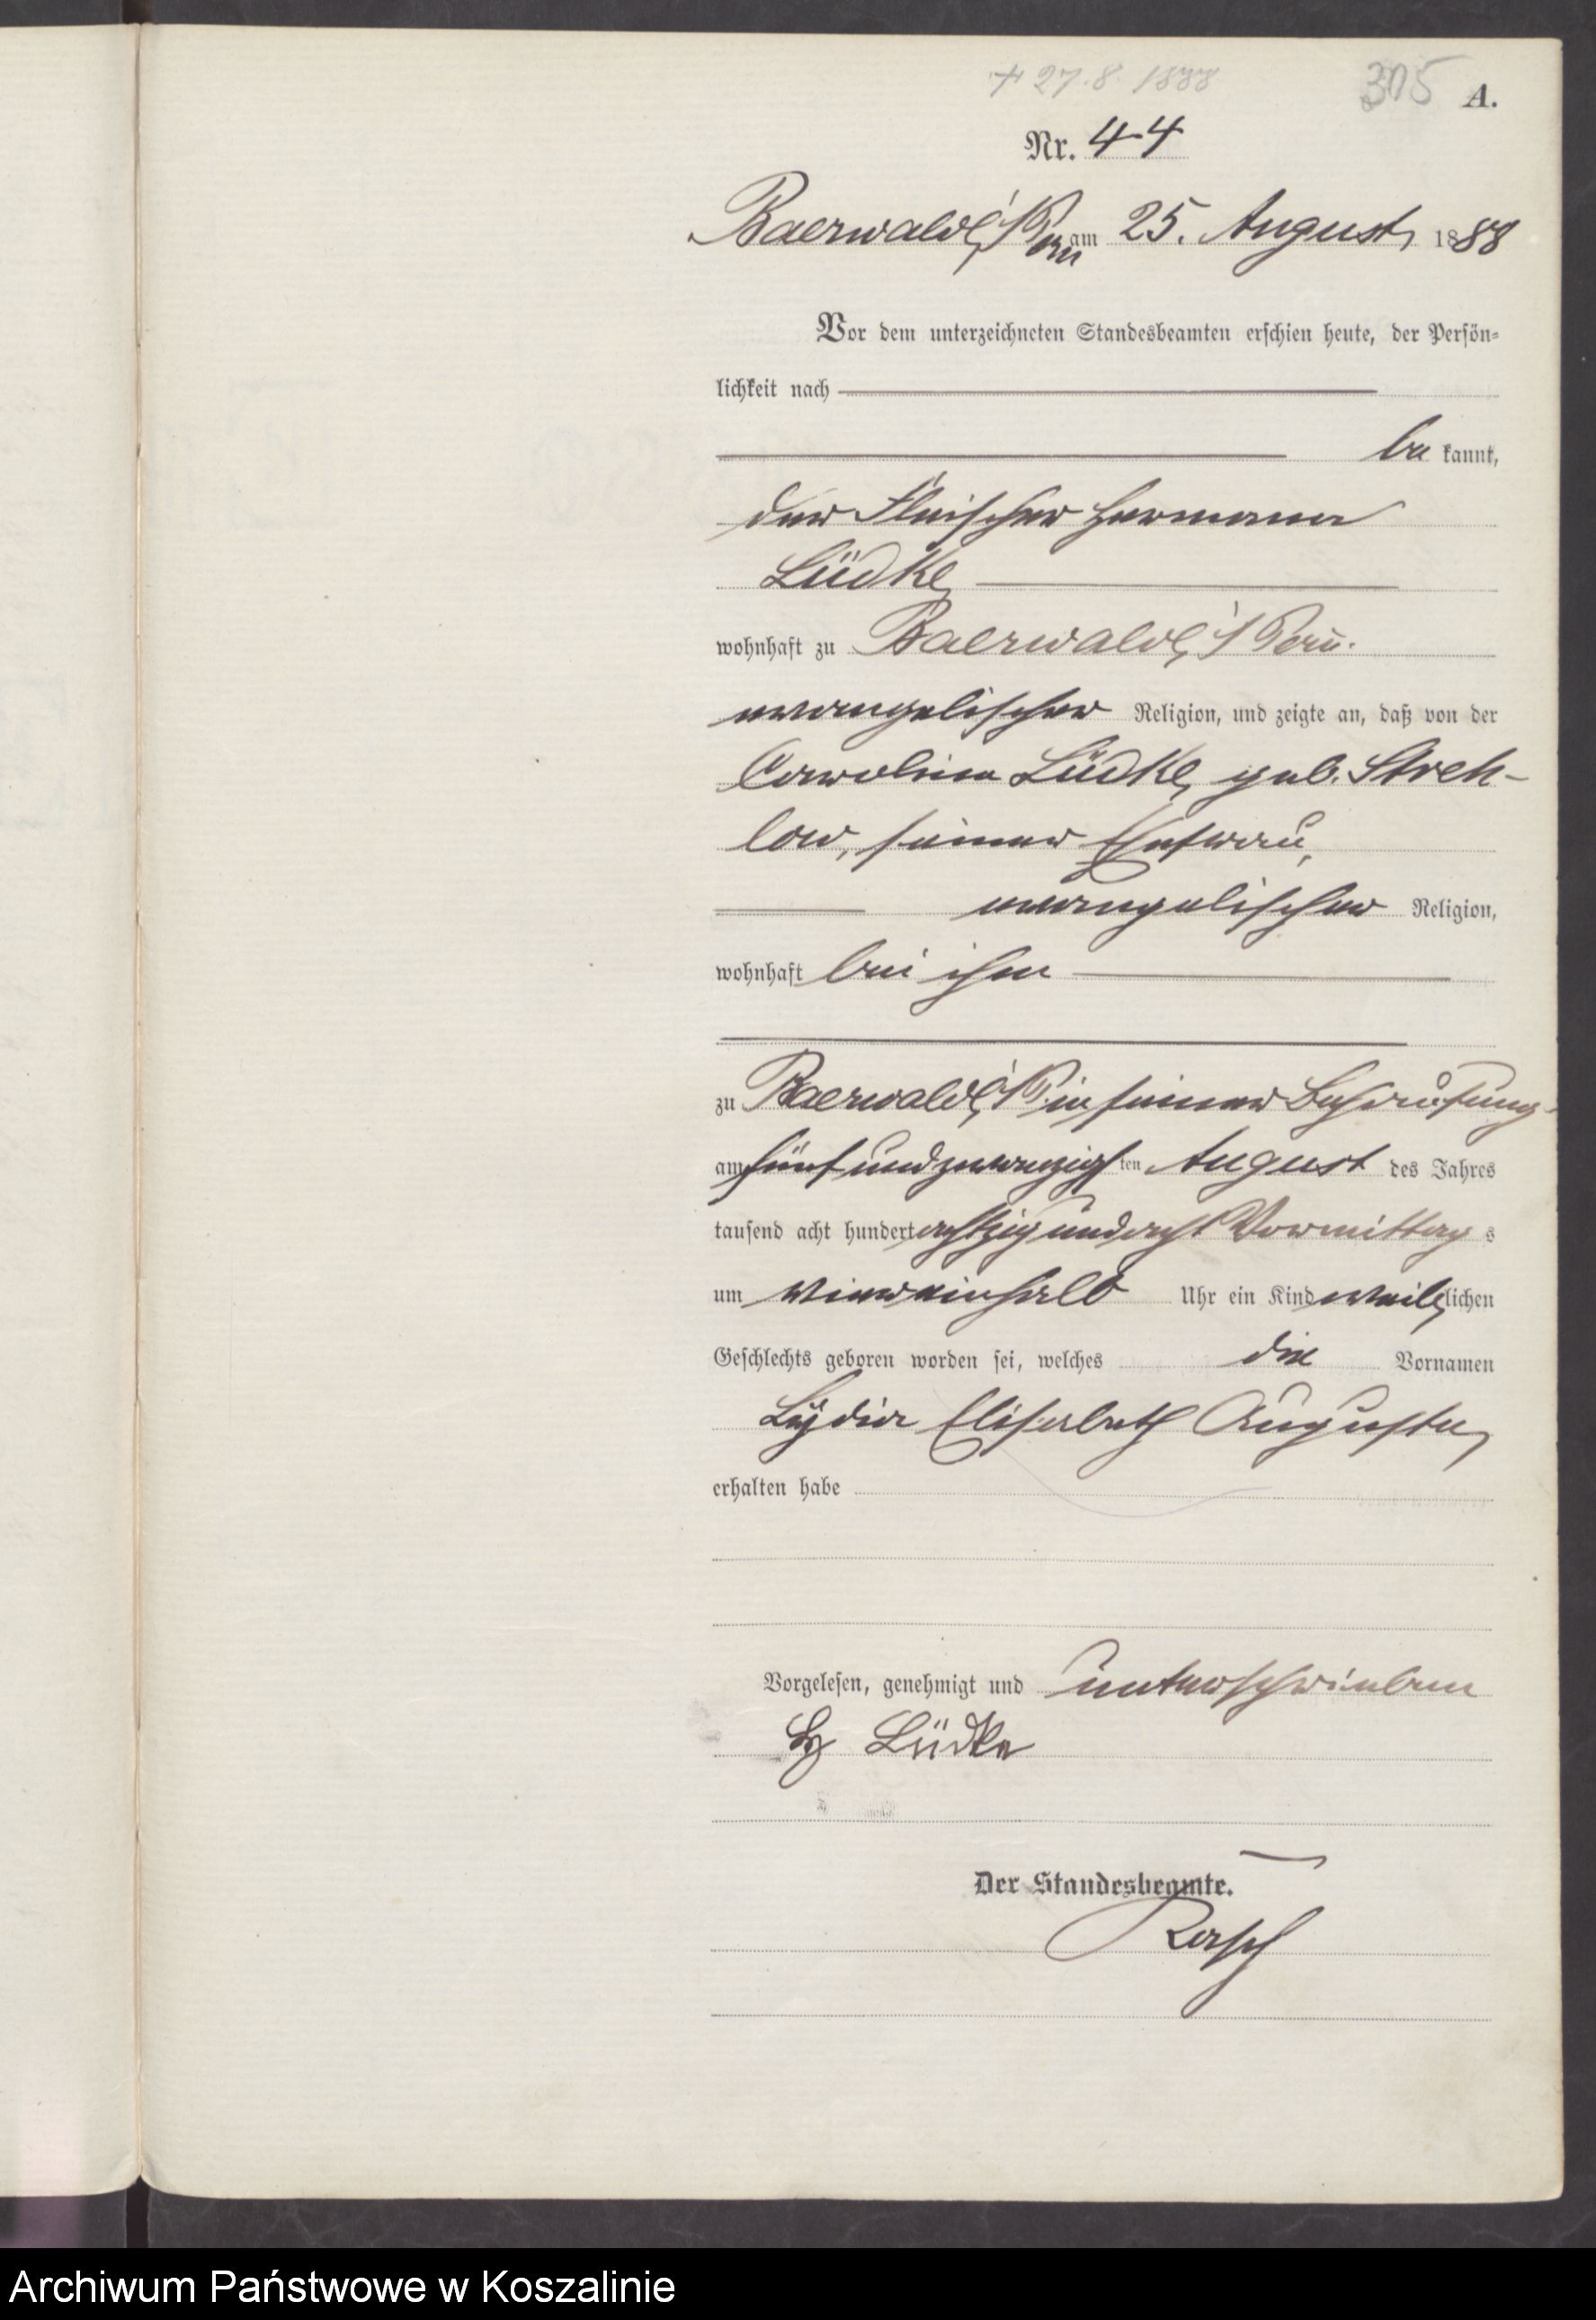 + 27.8.1888
305 A.
Nr. 44
Baerwalde i/Pom am 25. August 1888
Vor dem unterzeichneten Standesbeamten erschien heute, der Persön-
lichkeit nach
be kannt,
der Fleischer Hermann
Lüdke
wohnhaft zu Baerwalde i/Pom.
evangelischer Religion, und zeigte an, daß von der
Caroline Lüdke, geb. Streh-
low, seiner Ehefrau,
evangelischer Religion,
wohnhaft bei ihm
zu Baerwalde i/P in seiner Behausung
am fünf und zwanzigsten August des Jahres
tausend acht hundert achtzig und acht Vormittags
um Uhr ein Kind weiblichen
Geschlechts geboren worden sei, welches die Vornamen
Lydia Elisabeth Auguste
erhalten habe
Vorgelesen, genehmigt und unterschrieben
Lüdke
Der Standesbeamte.
Rasch
Archiwum Państwowe w Koszalinie